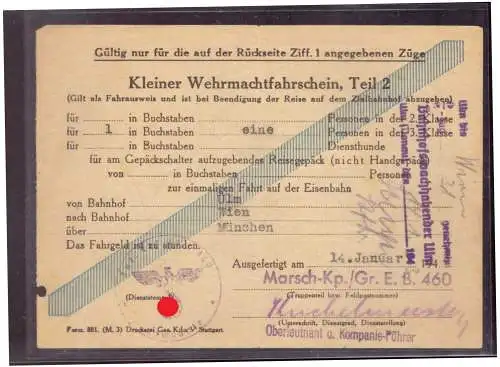 Gültig nur für die auf der Rückseite Ziff. 1 angegebenen Züge
Kleiner Wehrmachtfahrschein, Teil 2
(Gilt als Fahrausweis und ist bei Beendigung der Reise auf dem Zielbahnhof abzugeben)
für in Buchstaben Personen in der 2. Klasse
für 1 in Buchstaben eine Personen in der 3. Klasse
für in Buchstaben Diensthunde
für am Gepäckschalter aufzugebendes Reisegepäck (nicht Handgepäck)
von in Buchstaben Personen
zu einmaliger Fahrt auf der Eisenbahn
von Bahnhof Ulm
nach Bahnhof Wien
über München
Das Fahrgeld ist zu stunden.
Ausgefertigt am 14. Januar 194
Marsch-Kp./Gr. E. B. 460
(Dienststempel)
(Truppenteil bzw. Feldpostnummer)
(Unterschrift, Dienstgrad, Dienststellung)
Oberleutnant u. Kompanie-Führer
Form. 881. (M. 3) Druckerei Gen. Kdo. V Stuttgart
Bahnhofswachhabender Ulm